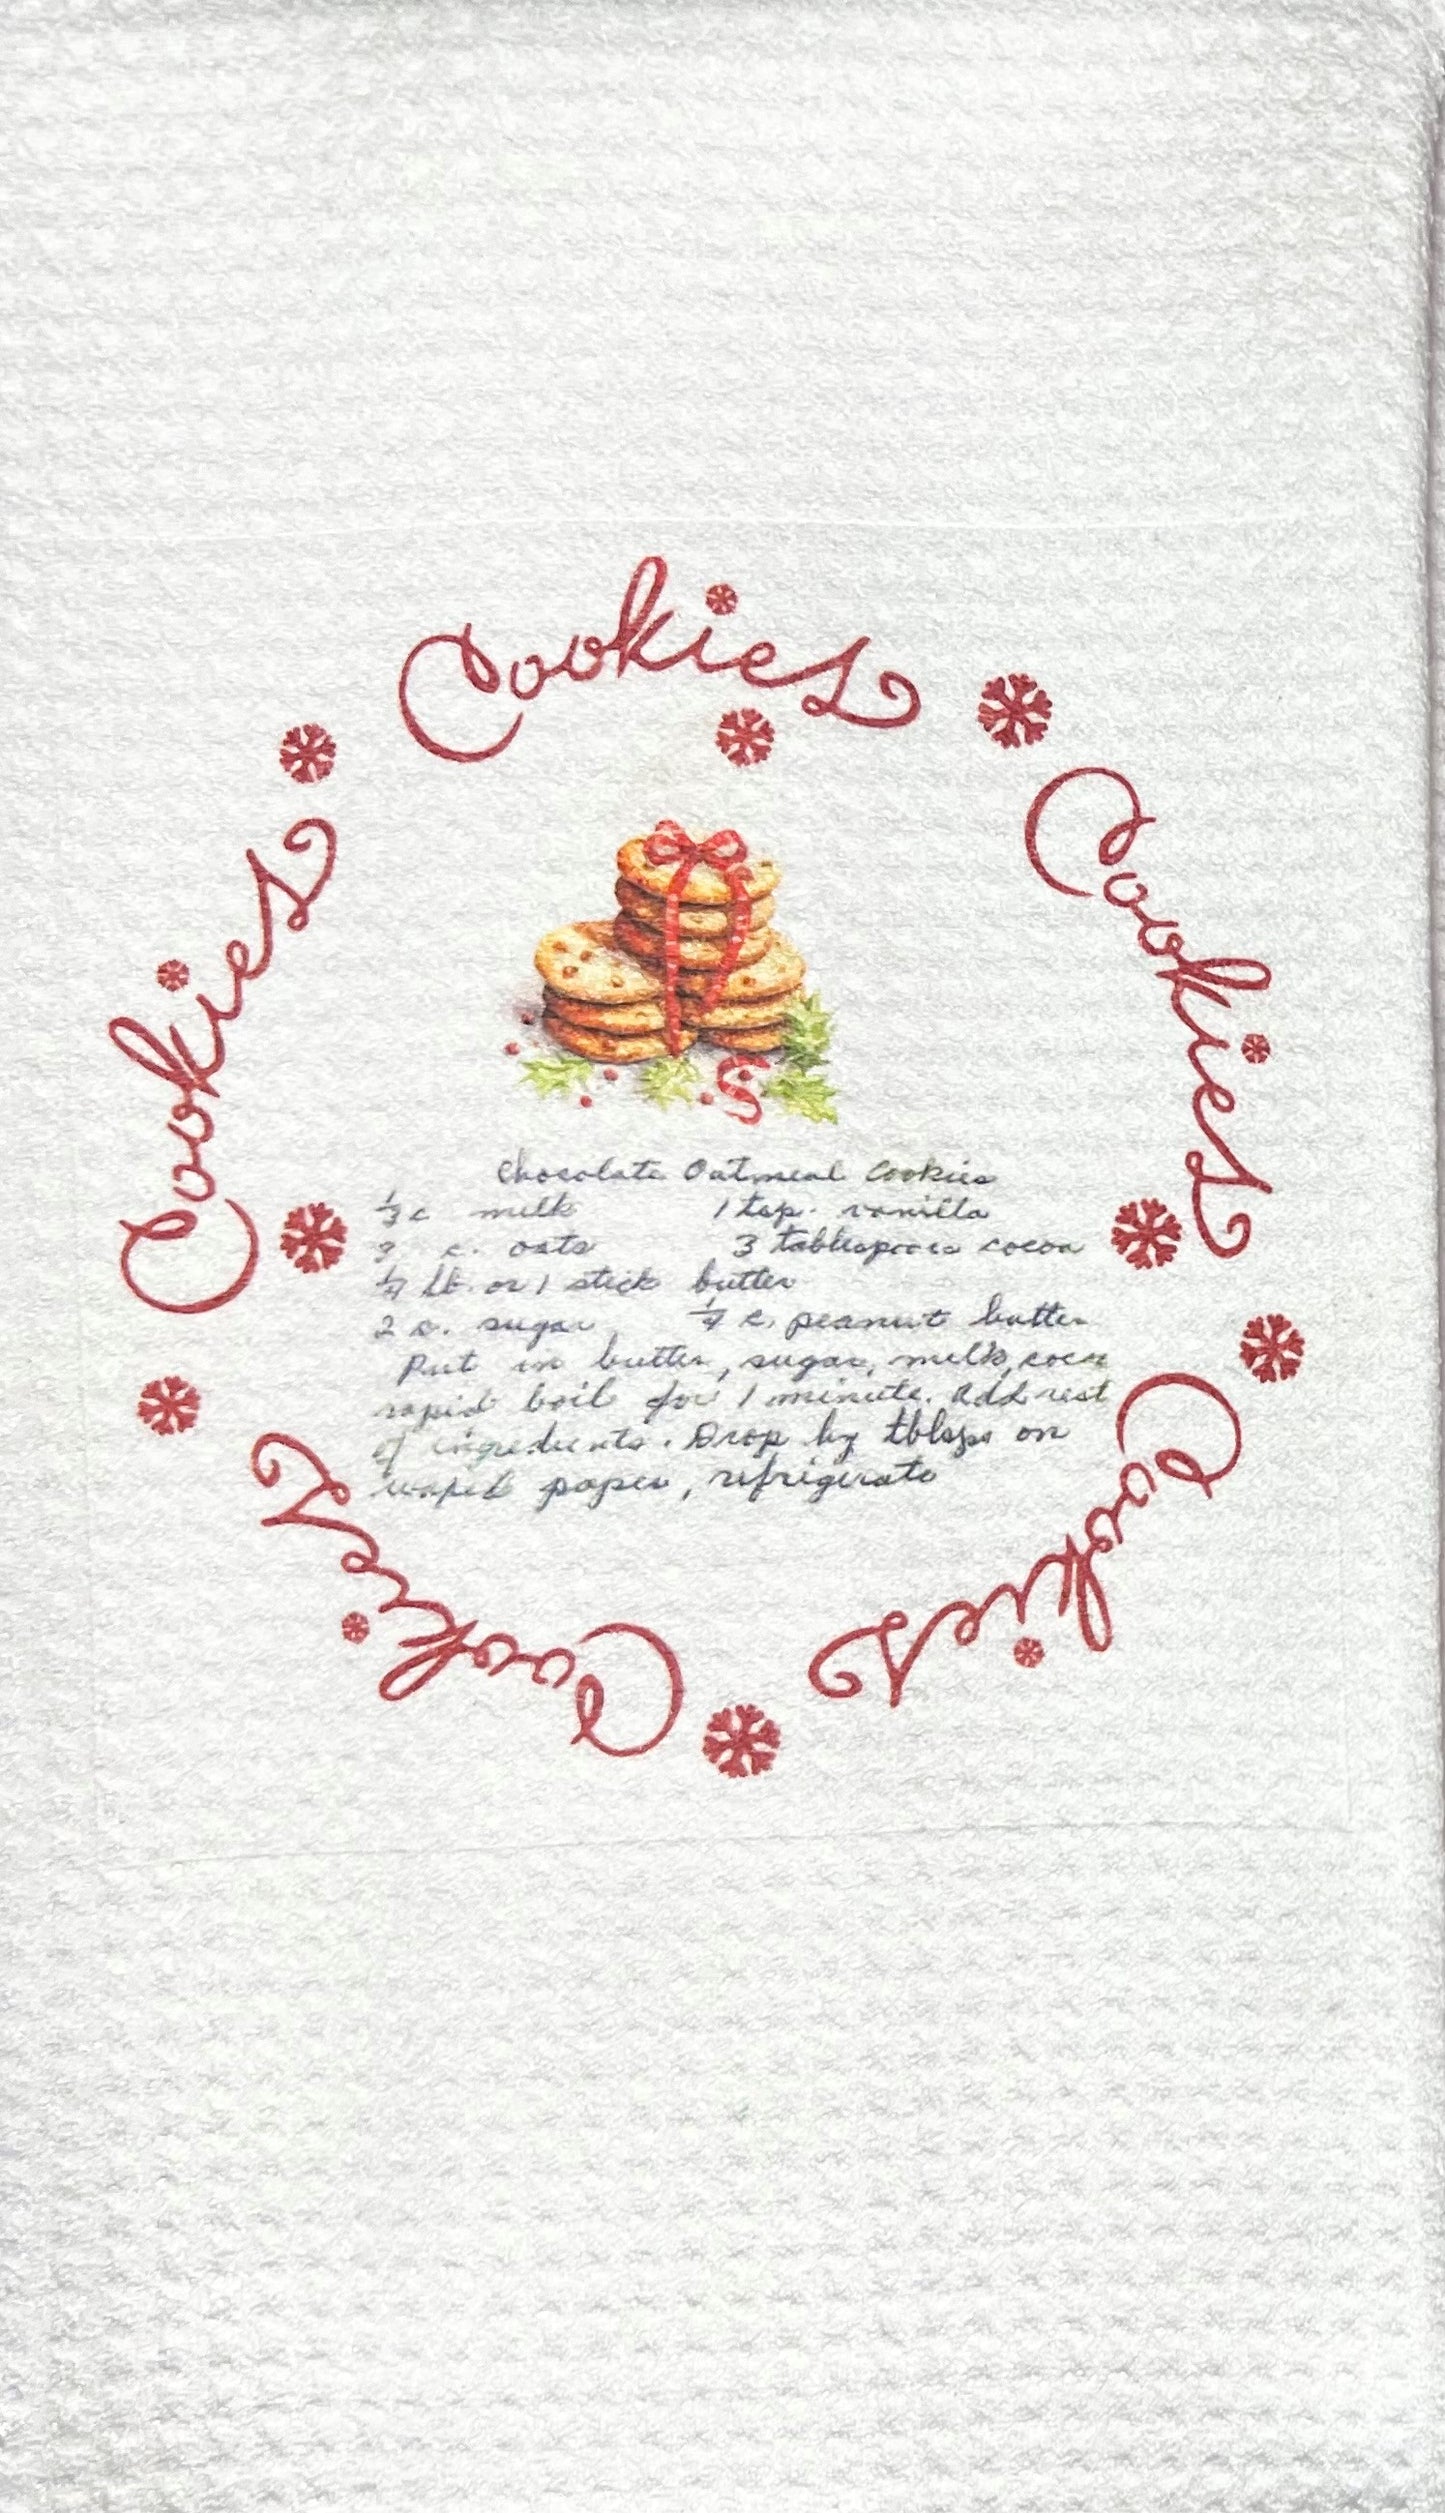 Cookies
Cookies
Cookies
Cookies
Cookies
Chocolate Oatmeal Cookies
1/3 c milk 1 tsp. vanilla
3 c. oats 3 tablespoons cocoa
1/4 lb. or 1 stick butter
2 c. sugar 1/4 c. peanut butter
Put in butter, sugar, milk, cocoa
rapid boil for 1 minute. Add rest
of ingredients. Drop by tblsps on
waxed paper, refrigerate